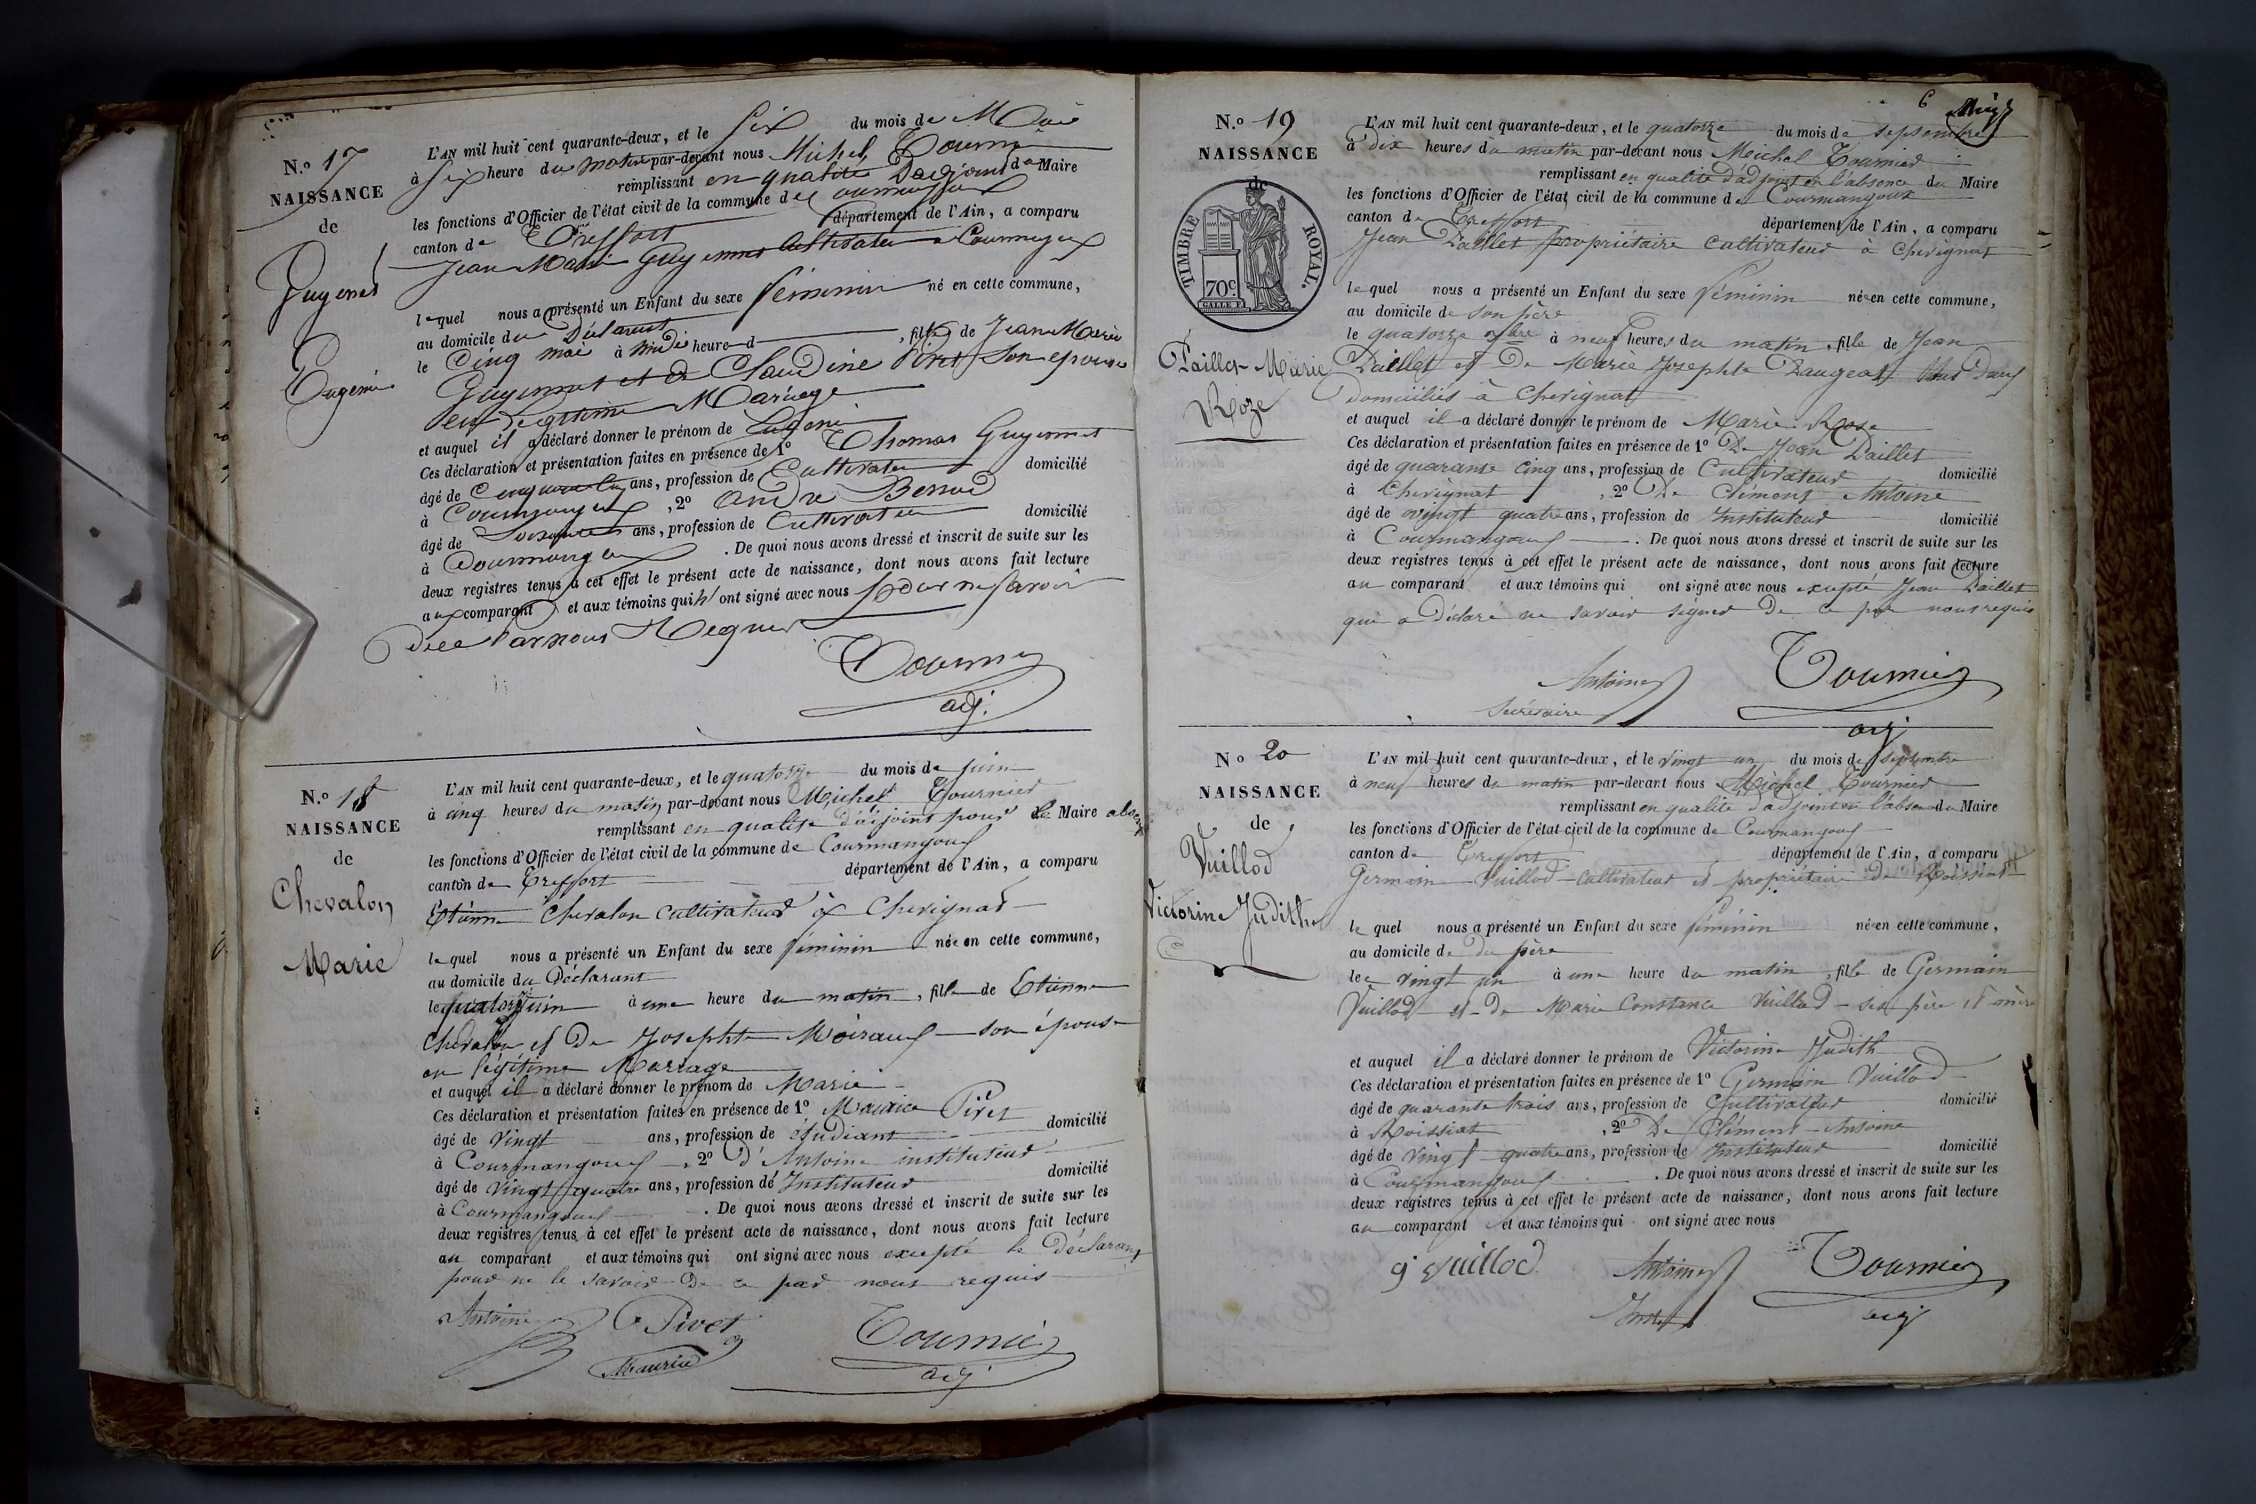 N.º 17
NAISSANCE
de
Guyennet
Eugenie
L'AN mil huit cent quarante-deux, et le Six du mois de Mai
à Six heure du matin par-devant nous Michel Tournier
remplissant en qualité Dadjoint du Maire
les fonctions d'Officier de l'état civil de la commune de Courmangoux
canton de Treffort département de l'Ain, a comparu
Jean Marie Guyennet Cultivateur a Courmangoux
lequel nous a présenté un Enfant du sexe féminin né en cette commune,
au domicile du Déclarent
le Cinq mai à midi heure d , fille de Jean Marie
Guyennet et de Claudine Pivet Son epouse
en Legitime Mariage
et auquel il a déclaré donner le prénom de Eugenie
Ces déclaration et présentation faites en présence de 1º Thomas Guyennet
âgé de ans, profession de Cultivateur domicilié
à Courmangoux , 2º Andre
âgé de Soixante ans, profession de Cultivateur domicilié
à Courmangoux . De quoi nous avons dressé et inscrit de suite sur les
deux registres tenus à cet effet le présent acte de naissance, dont nous avons fait lecture
aux comparant et aux témoins qui n' ont signé avec nous pour ne savoir
Par nous Requis
Tournier
adj.
N.º 18
NAISSANCE
de
Chevalon
Marie
L'AN mil huit cent quarante-deux, et le quatorze du mois de juin
à cinq heures du matin par-devant nous Michel Tournier
remplissant en qualité d'adjoint pour le Maire absent
les fonctions d'Officier de l'état civil de la commune de Courmangoux
canton de Treffort département de l'Ain, a comparu
Etienne Chevalon cultivateur à Chevignat
lequel nous a présenté un Enfant du sexe féminin née en cette commune,
au domicile du Déclarant
le quatorze juin à une heure du matin, fille de Etienne
Chevalon et De Josephte Moiraud son épouse
en légitime Mariage
et auquel il a déclaré donner le prénom de Marie
Ces déclaration et présentation faites en présence de 1º Maurice Pivet
âgé de vingt ans, profession de étudiant domicilié
à Courmangoux , 2º d'Antoine instituteur
âgé de vingt quatre ans, profession de Instituteur domicilié
à Courmangoux . De quoi nous avons dressé et inscrit de suite sur les
deux registres tenus à cet effet le présent acte de naissance, dont nous avons fait lecture
au comparant et aux témoins qui ont signé avec nous excepté le déclarant
pour ne le savoir de ce par nous requis
Antoine Pivet Tournier
Maurice adj.
6
N.º 19
NAISSANCE
de
TIMBRE ROYAL.
70c.
Paillet Marie
Roze
L'AN mil huit cent quarante-deux, et le quatorze du mois de septembre
à dix heures du matin par-devant nous Michel Tournier
remplissant en qualité d'adjoint en l'absence du Maire
les fonctions d'Officier de l'état civil de la commune de Courmangoux
canton de Treffort département de l'Ain, a comparu
Jean Paillet propriétaire cultivateur à Chevignat
lequel nous a présenté un Enfant du sexe féminin née en cette commune,
au domicile de son père
le quatorze 7bre à neuf heures du matin, fille de Jean
Paillet et De Marie Josephte Daugeat tous deux
domiciliés à Chevignat
et auquel il a déclaré donner le prénom de Marie Rose
Ces déclaration et présentation faites en présence de 1º De Jean Paillet
âgé de quarante cinq ans, profession de Cultivateur domicilié
à Chevignat , 2º De Clément Antoine
âgé de vingt quatre ans, profession de Instituteur domicilié
à Courmangoux . De quoi nous avons dressé et inscrit de suite sur les
deux registres tenus à cet effet le présent acte de naissance, dont nous avons fait lecture
au comparant et aux témoins qui ont signé avec nous excepté Jean Paillet
qui a déclaré ne savoir signer De ce par nous requis
Antoine Tournier
Secrétaire adj
N.º 20
NAISSANCE
de
Vuillod
Victorine Judith
L'AN mil huit cent quarante-deux, et le vingt un du mois de septembre
à neuf heures du matin par-devant nous Michel Tournier
remplissant en qualité d'adjoint en l'absence du Maire
les fonctions d'Officier de l'état civil de la commune de Courmangoux
canton de Treffort département de l'Ain, a comparu
Germain Vuillod cultivateur et propriétaire de Roissiat
lequel nous a présenté un Enfant du sexe féminin née en cette commune,
au domicile de du père
le vingt un à une heure du matin, fille de Germain
Vuillod et De Marie Constance Vuillod ses père et mère
et auquel il a déclaré donner le prénom de Victorine Judith
Ces déclaration et présentation faites en présence de 1º Germain Vuillod
âgé de quarante trois ans, profession de Cultivateur domicilié
à Roissiat , 2º De Clément Antoine
âgé de vingt quatre ans, profession de Instituteur domicilié
à Courmangoux . De quoi nous avons dressé et inscrit de suite sur les
deux registres tenus à cet effet le présent acte de naissance, dont nous avons fait lecture
au comparant et aux témoins qui ont signé avec nous
g vuillod Antoine Tournier
adj